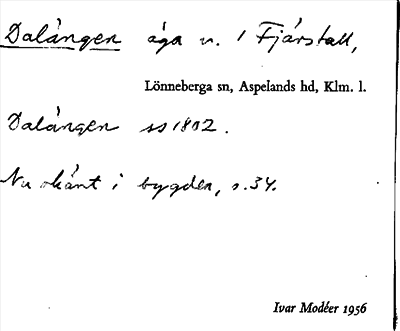 Dalängen äga u. / Fjärstall,
Lönneberga sn, Aspelands hd, Klm. l.
Dalängen ss 1802.
Nu okänt i bygden, s. 34.
Ivar Modéer 1956